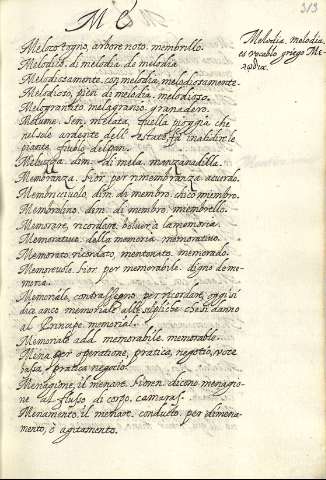 M E
313
Melocotogno, arbore noto. membrillo.
Melodico, di melodia. de melodia
Melodiosamente. con melodia, melodiosamente.
Melodioso, pien di melodia. melodioso.
Melogranato melagrano. granadero.
Melume. sen. melata, quella pioggia che
nel sole ardente dell' estate fa inaridir le
piante,
Meluzza. dim. di mela. manzanadilla.
Membranza. fior. per rimembranza. acuerdo.
Membricciuolo, dim. di membro. chico miembro.
Membrolino. dim. di membro. miembrello.
Memorare, ricordare. bolver a la memoria
Memorativo. della memoria. memorativo.
Memorato. ricordato, mentovato. memorado.
Memorevole. fior. per memorabile. digno de me-
moria.
Memoriale, contrassegno per ricordare, oggi si
dice anco memoriale alle supliche che si danno
al Principe. memorial.
Memoriale add. memorabile. memorable.
Mena. per operatione, pratica, negotio, voce
bassa. pratica negocio.
Menagione, il menare. fioren. dicono menagio-
ne al flusso di corpo. camaras.
Menamento. il menare. conducto. per dimena-
mento, è agitamento.
Melodia, melodia.
es vocablo griego Με-
λωδια.